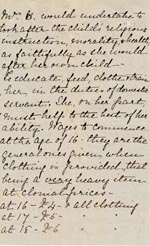 Mrs B. would undertake to
look after the child's religious
instruction, morality & health
as faithfully as she would
after her own child —
To educate, feed, clothe & train
her in the duties of domestic
servant. She, on her part,
must help to the best of her
ability. Wages to commence
at the age of 16 - they are the
general ones given when
clothing is provided, that
being a very heavy item
at colonial prices -
at 16 - £4 - & all clothing
at 17 - £5 -
at 18 - £6